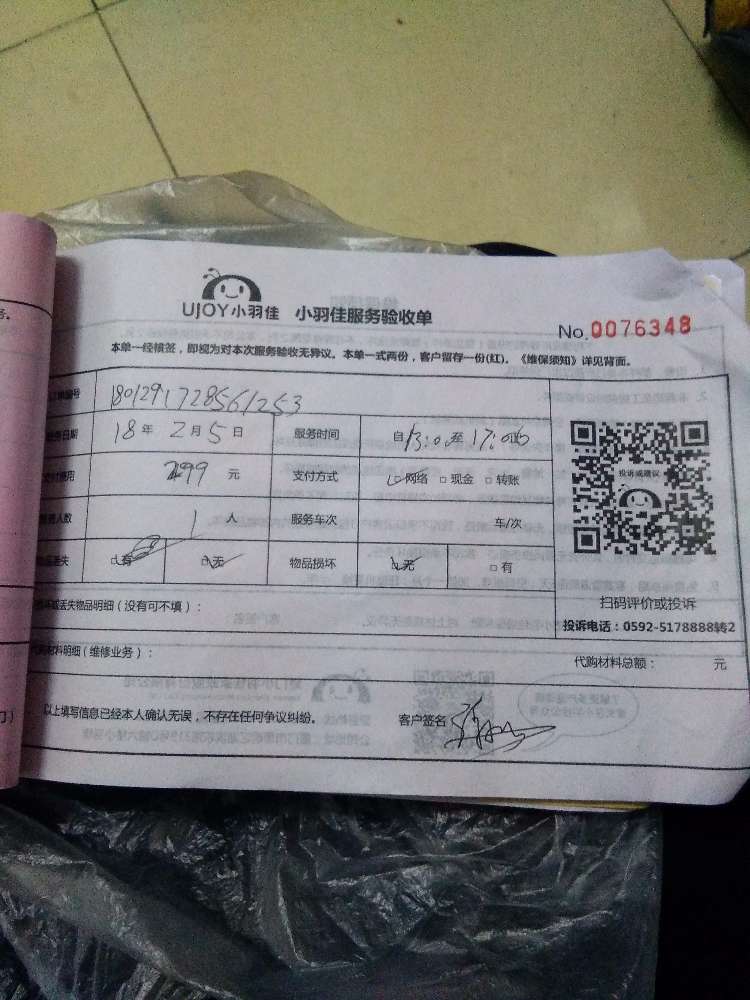 UJOY小羽佳 小羽佳服务验收单
No.0076348
本单一经横签，即视为对本次服务验收无异议。本单一式两份，客户留存一份(红)。《维保须知》详见背面。
编号 1801291728561253
日期 18年2月5日 服务时间 自13:00至17:00
费用 299元 支付方式 网络 现金 转账
人数 1人 服务车次 车/次
丢失 有 无 物品损坏 无 有
投诉或建议
扫码评价或投诉
丢失物品明细（没有可不填）：
投诉电话：0592-5178888转2
材料明细（维修业务）：
代购材料总额： 元
以上填写信息已经本人确认无误，不存在任何争议纠纷。
客户签名